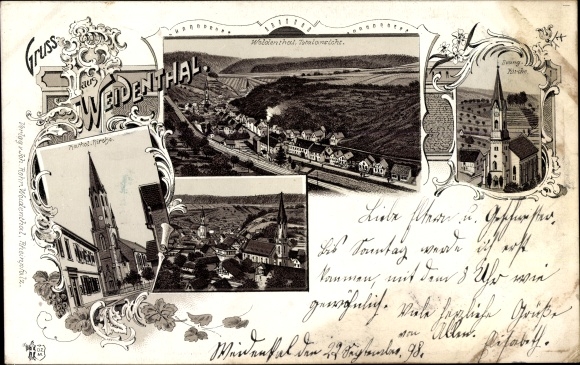 Gruss
aus
WEIDENTHAL.
Weidenthal. Totalansicht.
Evang.
Kirche.
Kathol. Kirche.
Verlag v. Joh. Weidenthal, Rheinpfalz.
Liebe Eltern u. Geschwister.
Bis Sonntag werde ich erst
kommen, mit dem 8 Uhr wie
gewöhnlich. Viele herzliche Grüße
von Allen. Elisabeth.
Weidenthal den 29 September 98.